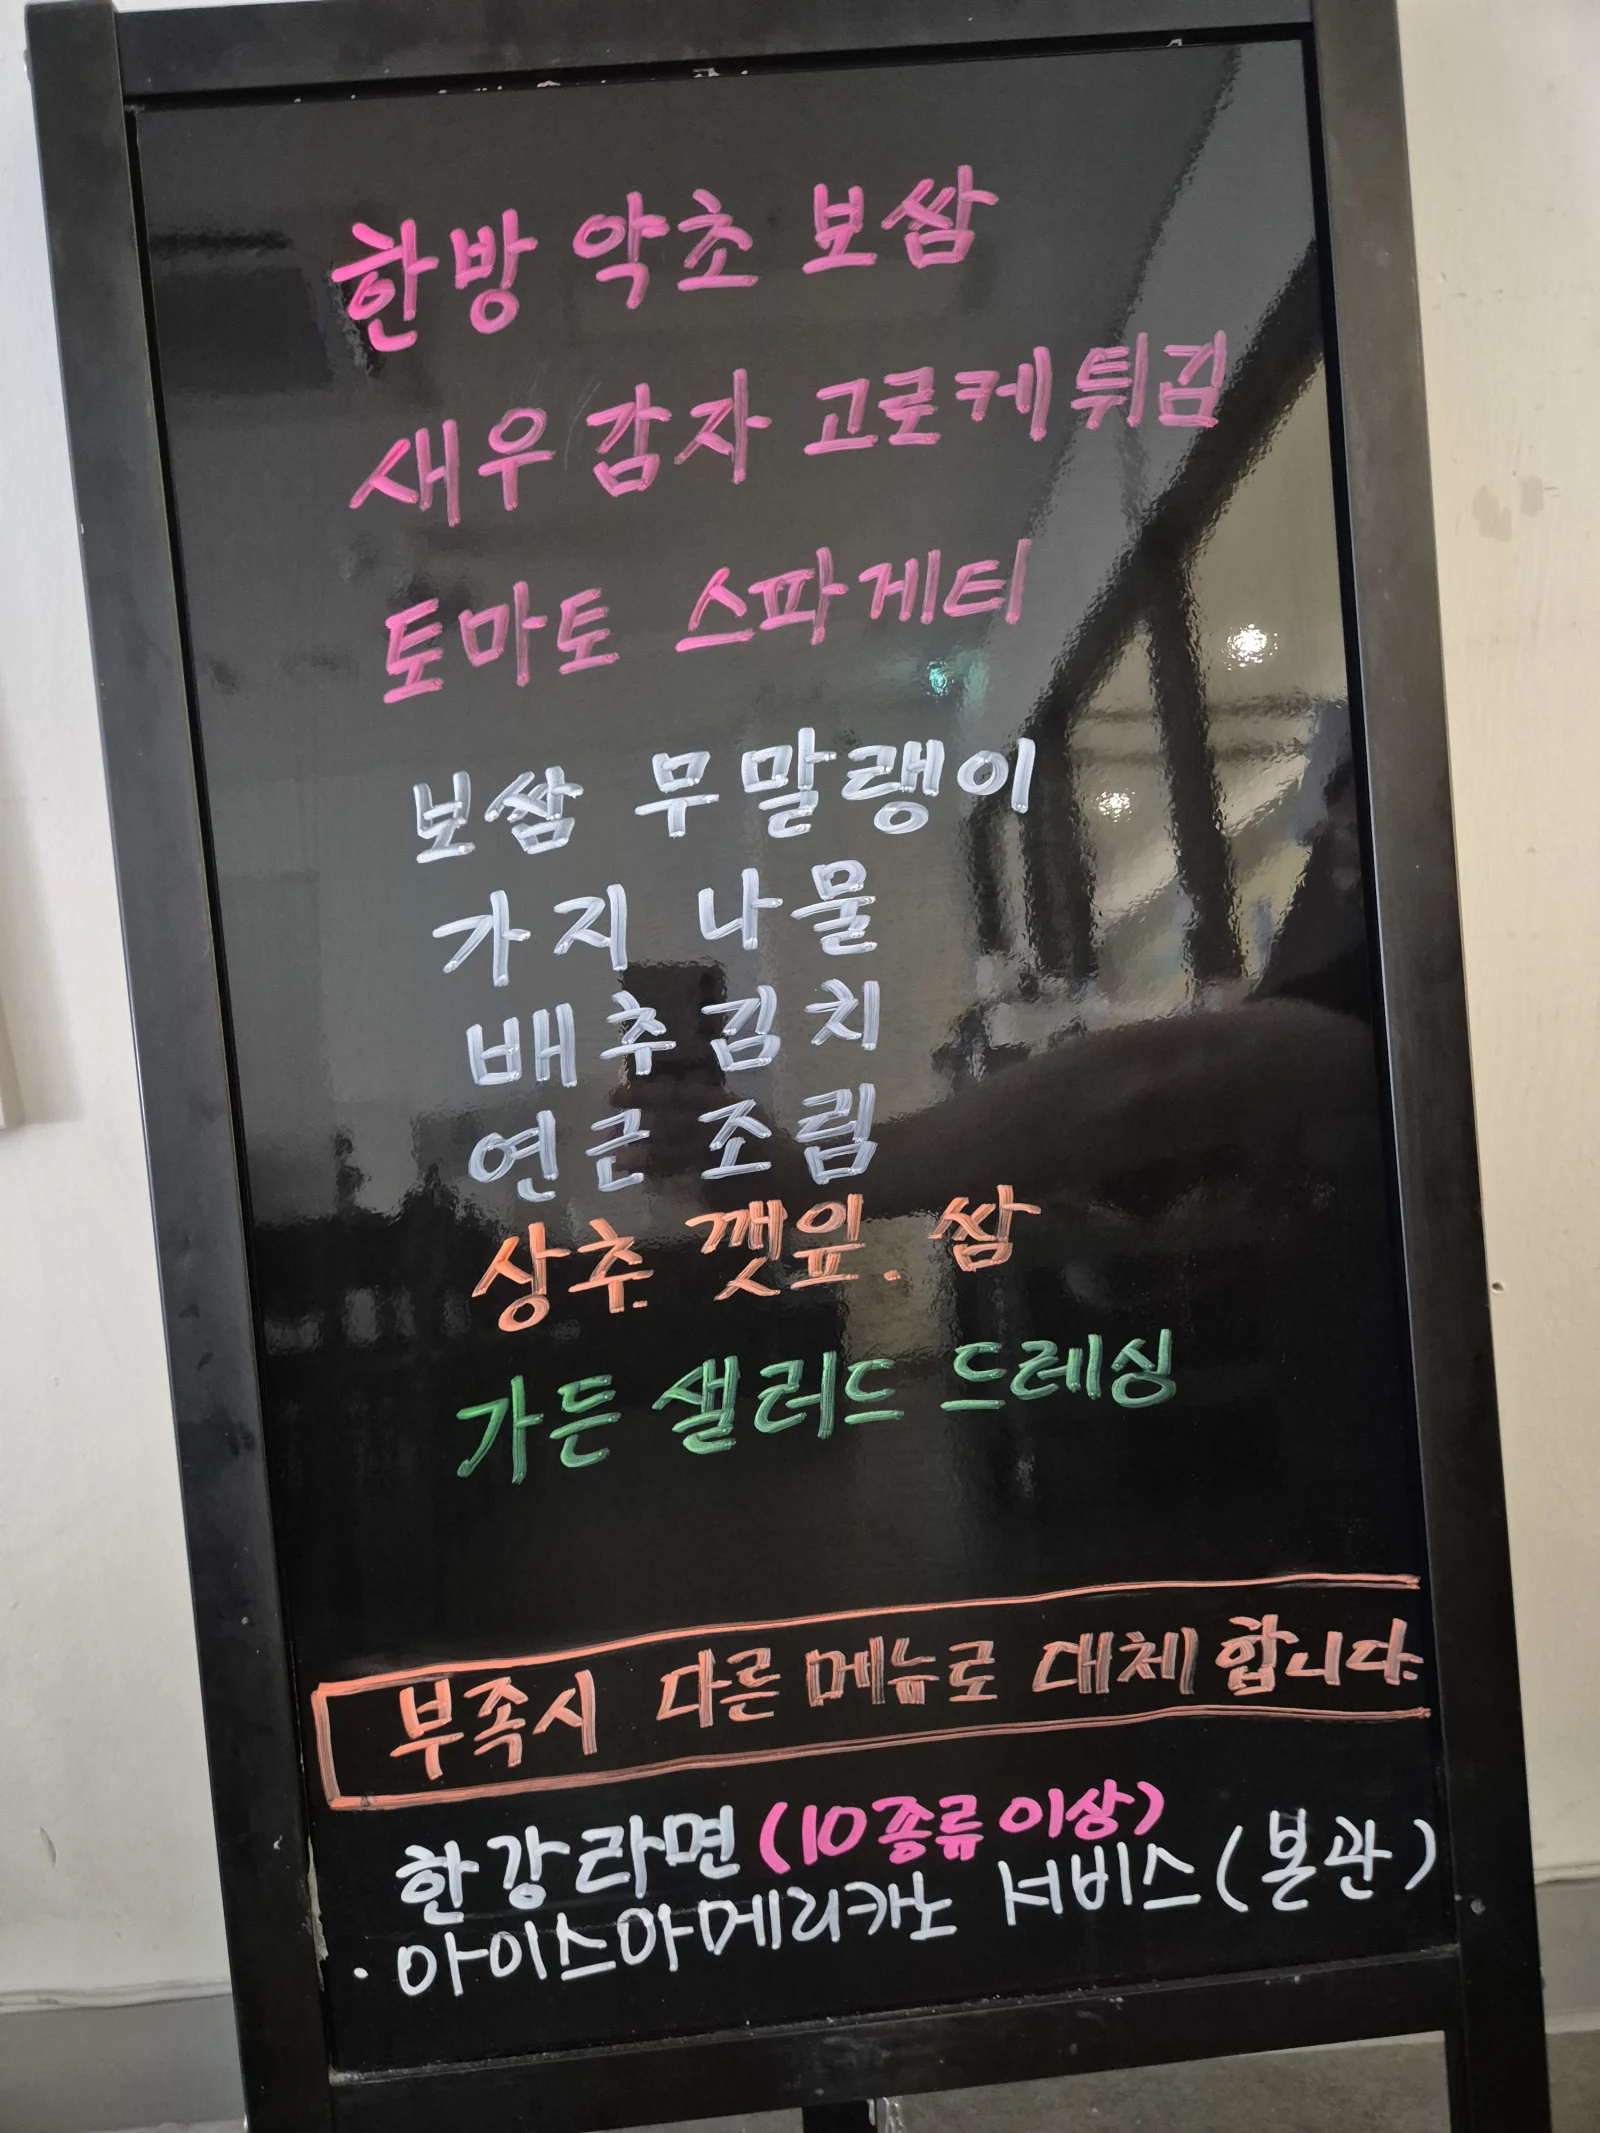 한방 약초 보쌈
새우 감자 고로케 튀김
토마토 스파게티
보쌈 무말랭이
가지 나물
배추김치
연근 조림
상추 깻잎. 쌈
가든 샐러드 드레싱
부족시 다른 메뉴로 대체 합니다.
한강라면 (10종류 이상)
· 아이스아메리카노 서비스 (본관)